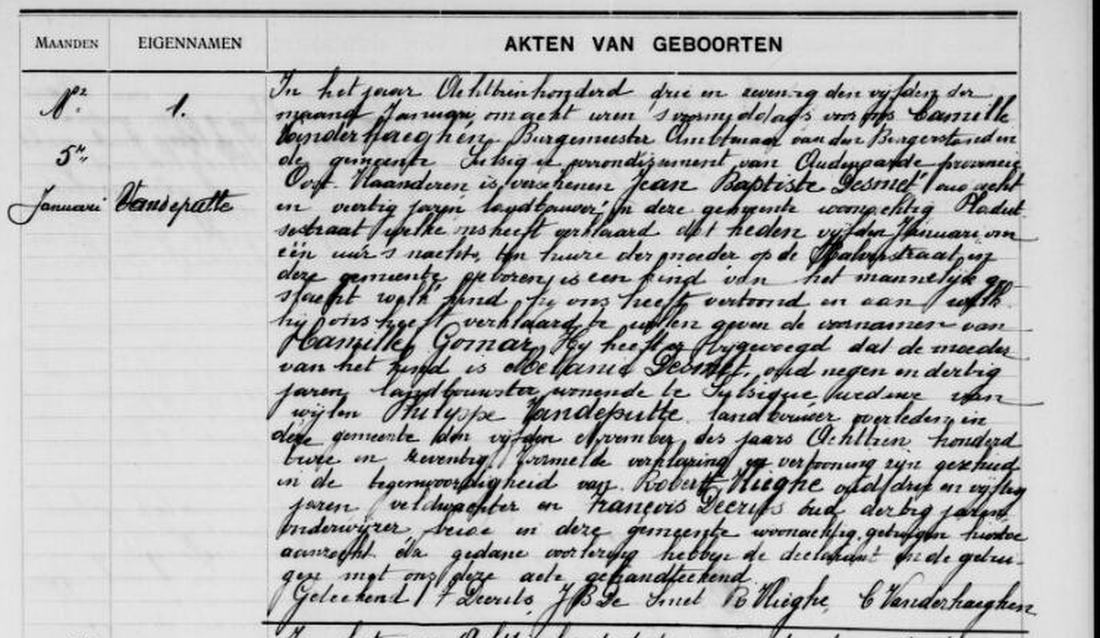 MAANDEN EIGENNAMEN AKTEN VAN GEBOORTEN
Nr 1.
5n
Januari Vandeputte
In het jaar Achttienhonderd drie en zeventig den vyfden der
maand Januari, om acht uren 's voormiddags voor ons Camille
Vanderhaeghen, Burgemeester Ambtenaar van den Burgerstand in
de gemeente arrondissement van Audenaarde provincie
Oost-Vlaanderen is verschenen Jean Baptiste Desmet, oud acht
en veertig jaren landbouwer in deze gemeente woonachtig Pladut-
sestraat welke ons heeft verklaard dat heden vyfden Januari om
één uur 's nachts, ten huize der moeder op de in
deze gemeente geboren is een kind van het mannelyk ge-
slacht welk kind hy ons heeft vertoond en aan welk
hy ons heeft verklaard te willen geven de voornamen van
Kamille Gomar, Hy heeft er bygevoegd dat de moeder
van het kind is Melanie Desmet, oud negen en dertig
jaren landbouwster, wonende te Sylsique weduwe van
wylen Philippe Vandeputte landbouwer overleden in
deze gemeente den vyfden November des jaars Achttien honderd
twee en zeventig, Vormelde verklaring en vertooning zyn geschied
in de tegenwoordigheid van Robert Vlieghe oud drie en vyftig
jaren veldwachter en François Decruts oud dertig jaren
onderwyzer beide in deze gemeente woonachtig, getuigen hiertoe
aanzocht. Na gedane voorlezing hebben de declarant en de getui-
gen met ons deze acte gehandteekend.
Geteekend F Decruts J B De Smet R Vlieghe, C Vanderhaeghen